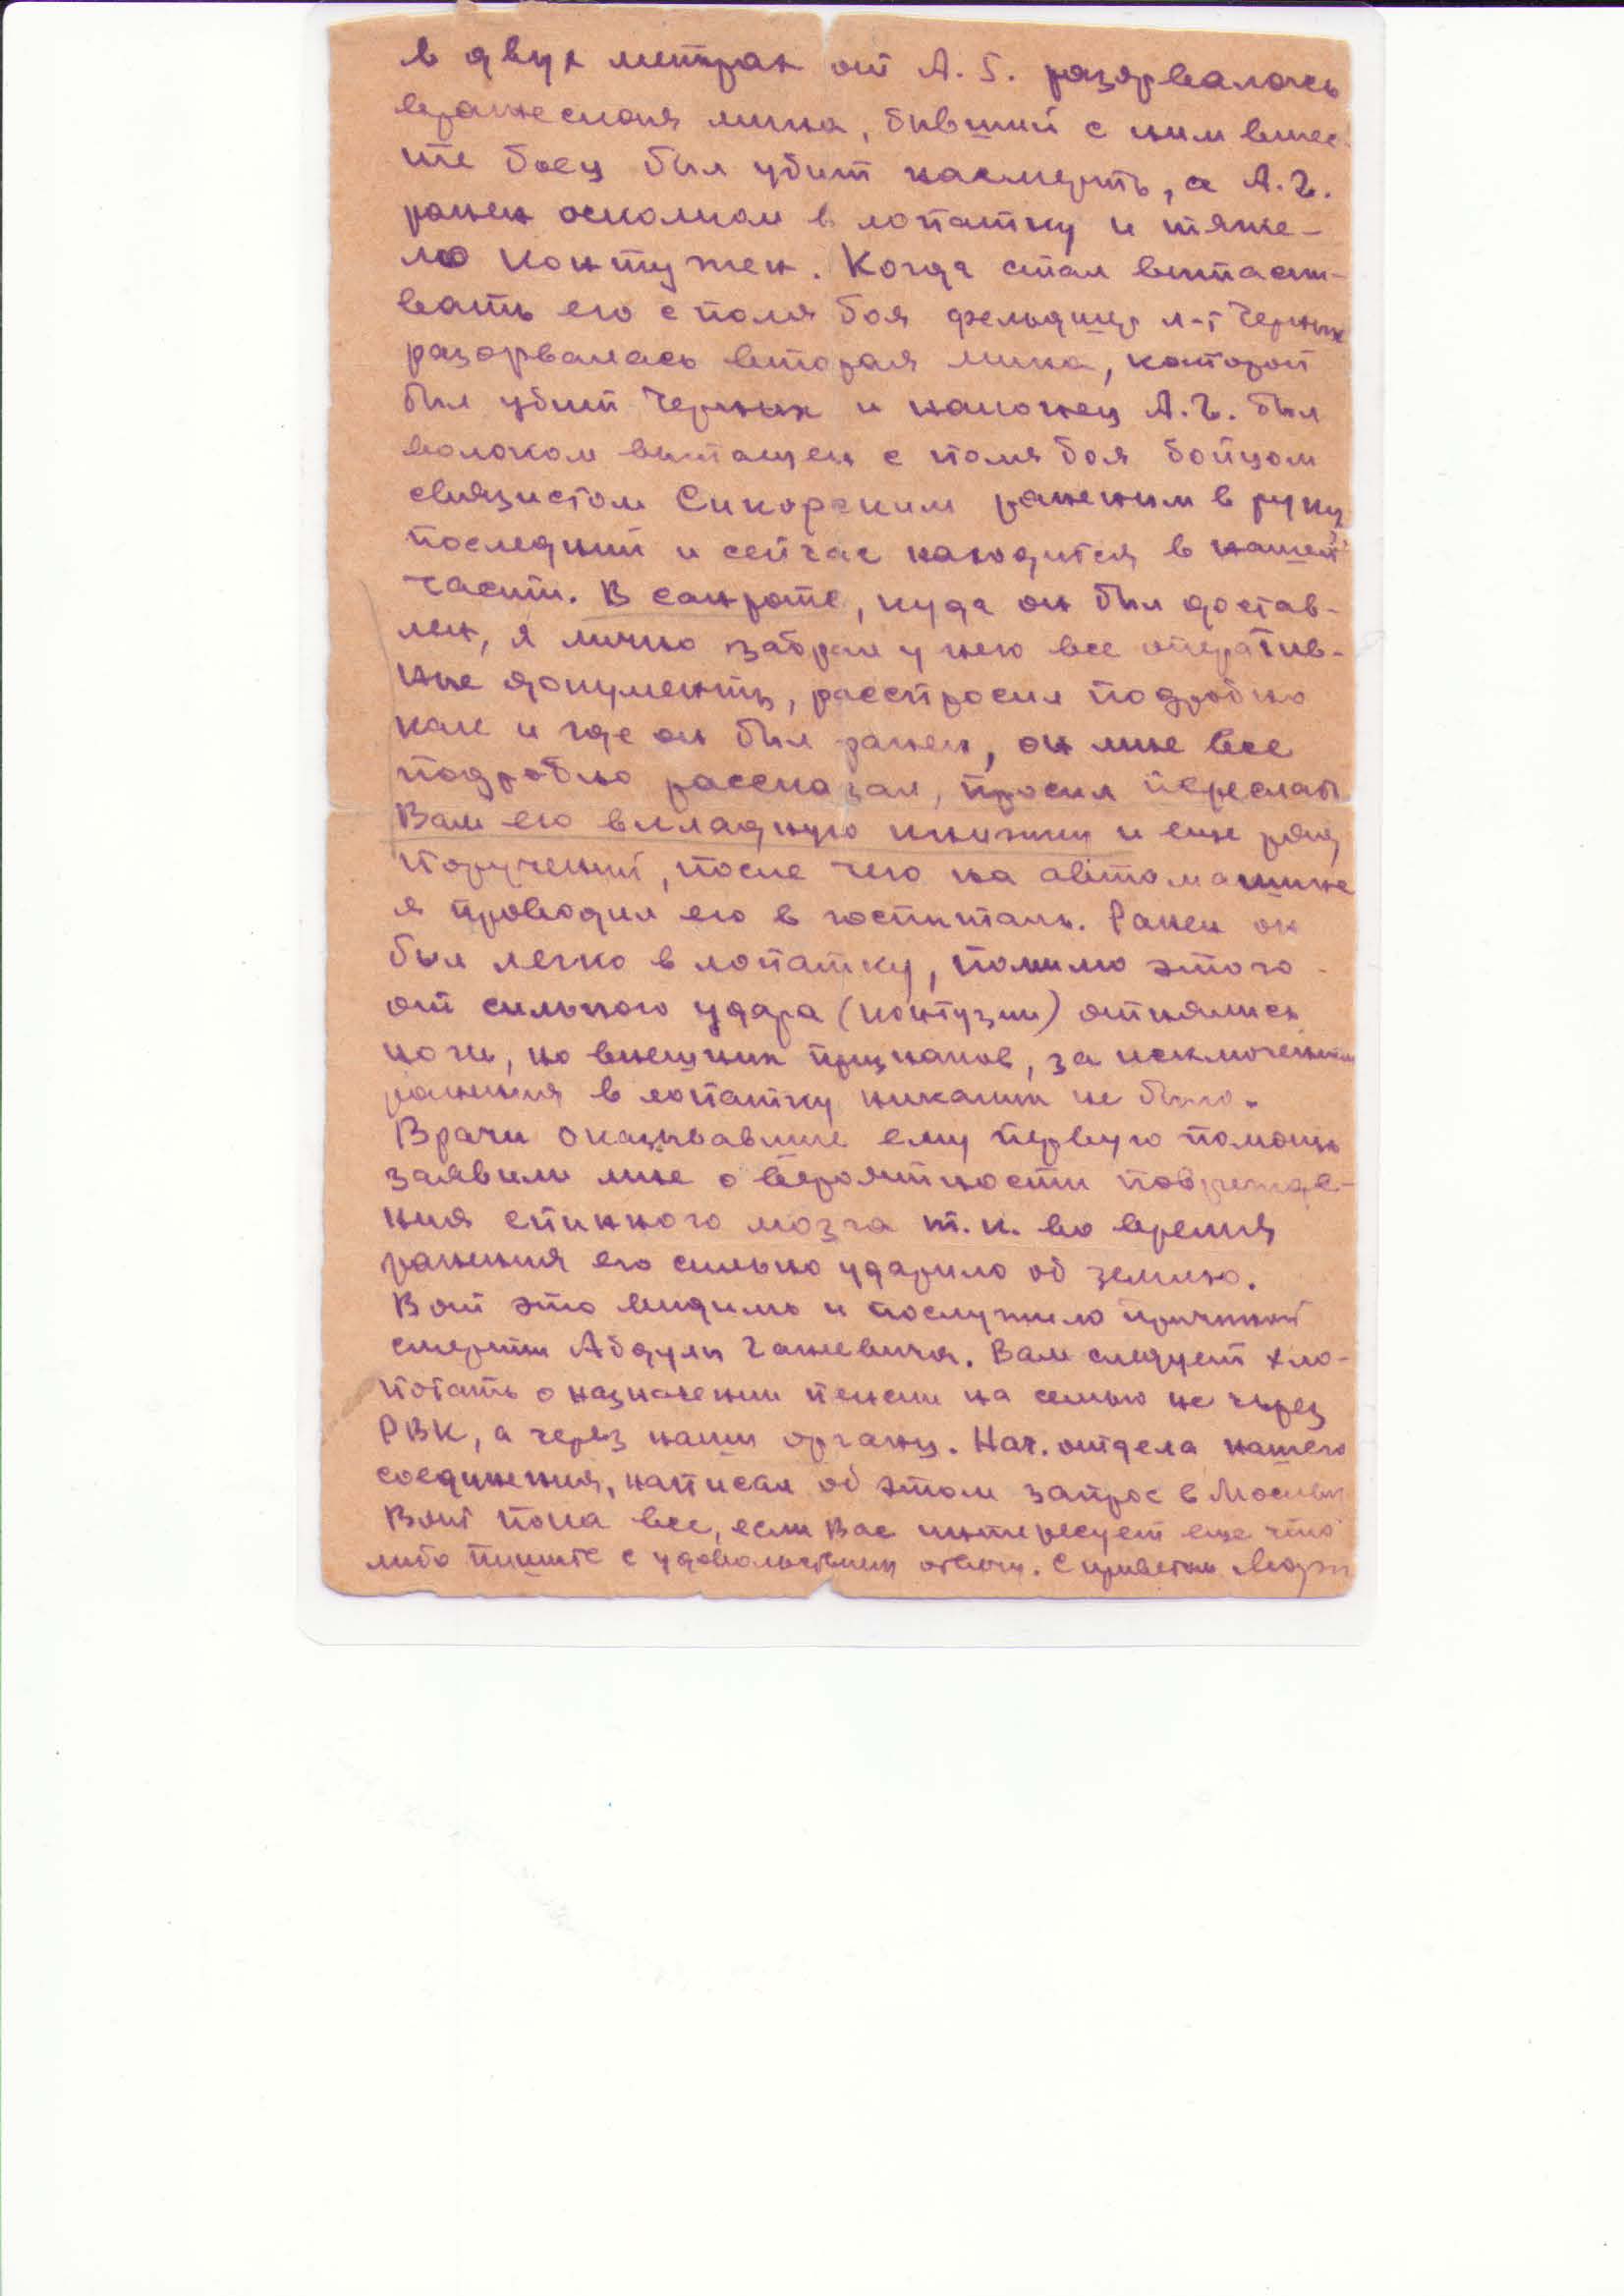 в двух метрах от А. Г. разорвалась
вражеская мина, бивший с ним вмес-
те боец был убит насмерть, а А.Г.
ранен осколком в лопатку и тяже-
ло контужен. Когда стал вытаски-
вать его с поля боя фельдшер л-т Черных
разорвалась вторая мина, которой
был убит Черных и наконец А.Г. был
волоком вытащен с поля боя бойцом
связистом Сикорским раненым в руку,
последний и сейчас находится в нашей
части. В санроте, куда он был достав-
лен, я лично забрал у него все оператив-
ные документы, расспросил подробно
как и где он был ранен, он мне все
подробно рассказал, просил переслать
Вам его вкладную книжку и еще ряд
поручений, после чего на автомашине
я проводил его в госпиталь. Ранен он
был легко в лопатку, помимо этого
от сильного удара (контузии) отнялись
ноги, но внешних признаков, за исключением
ранения в лопатку никаких не было.
Врачи оказывавшие ему первую помощь
заявили мне о вероятности поврежде-
ния спинного мозга т.к. во время
ранения его сильно ударило об землю.
Вот это видимо и послужило причиной
смерти Абдулы Ганевича. Вам следует хло-
потать о назначении пенсии на семью не через
РВК, а через наши органы. Нач. отдела нашего
соединения, написал об этом запрос в Москву
Вот пока все, если Вас интересует еще что
либо пишите с удовольствием отвечу. С приветом